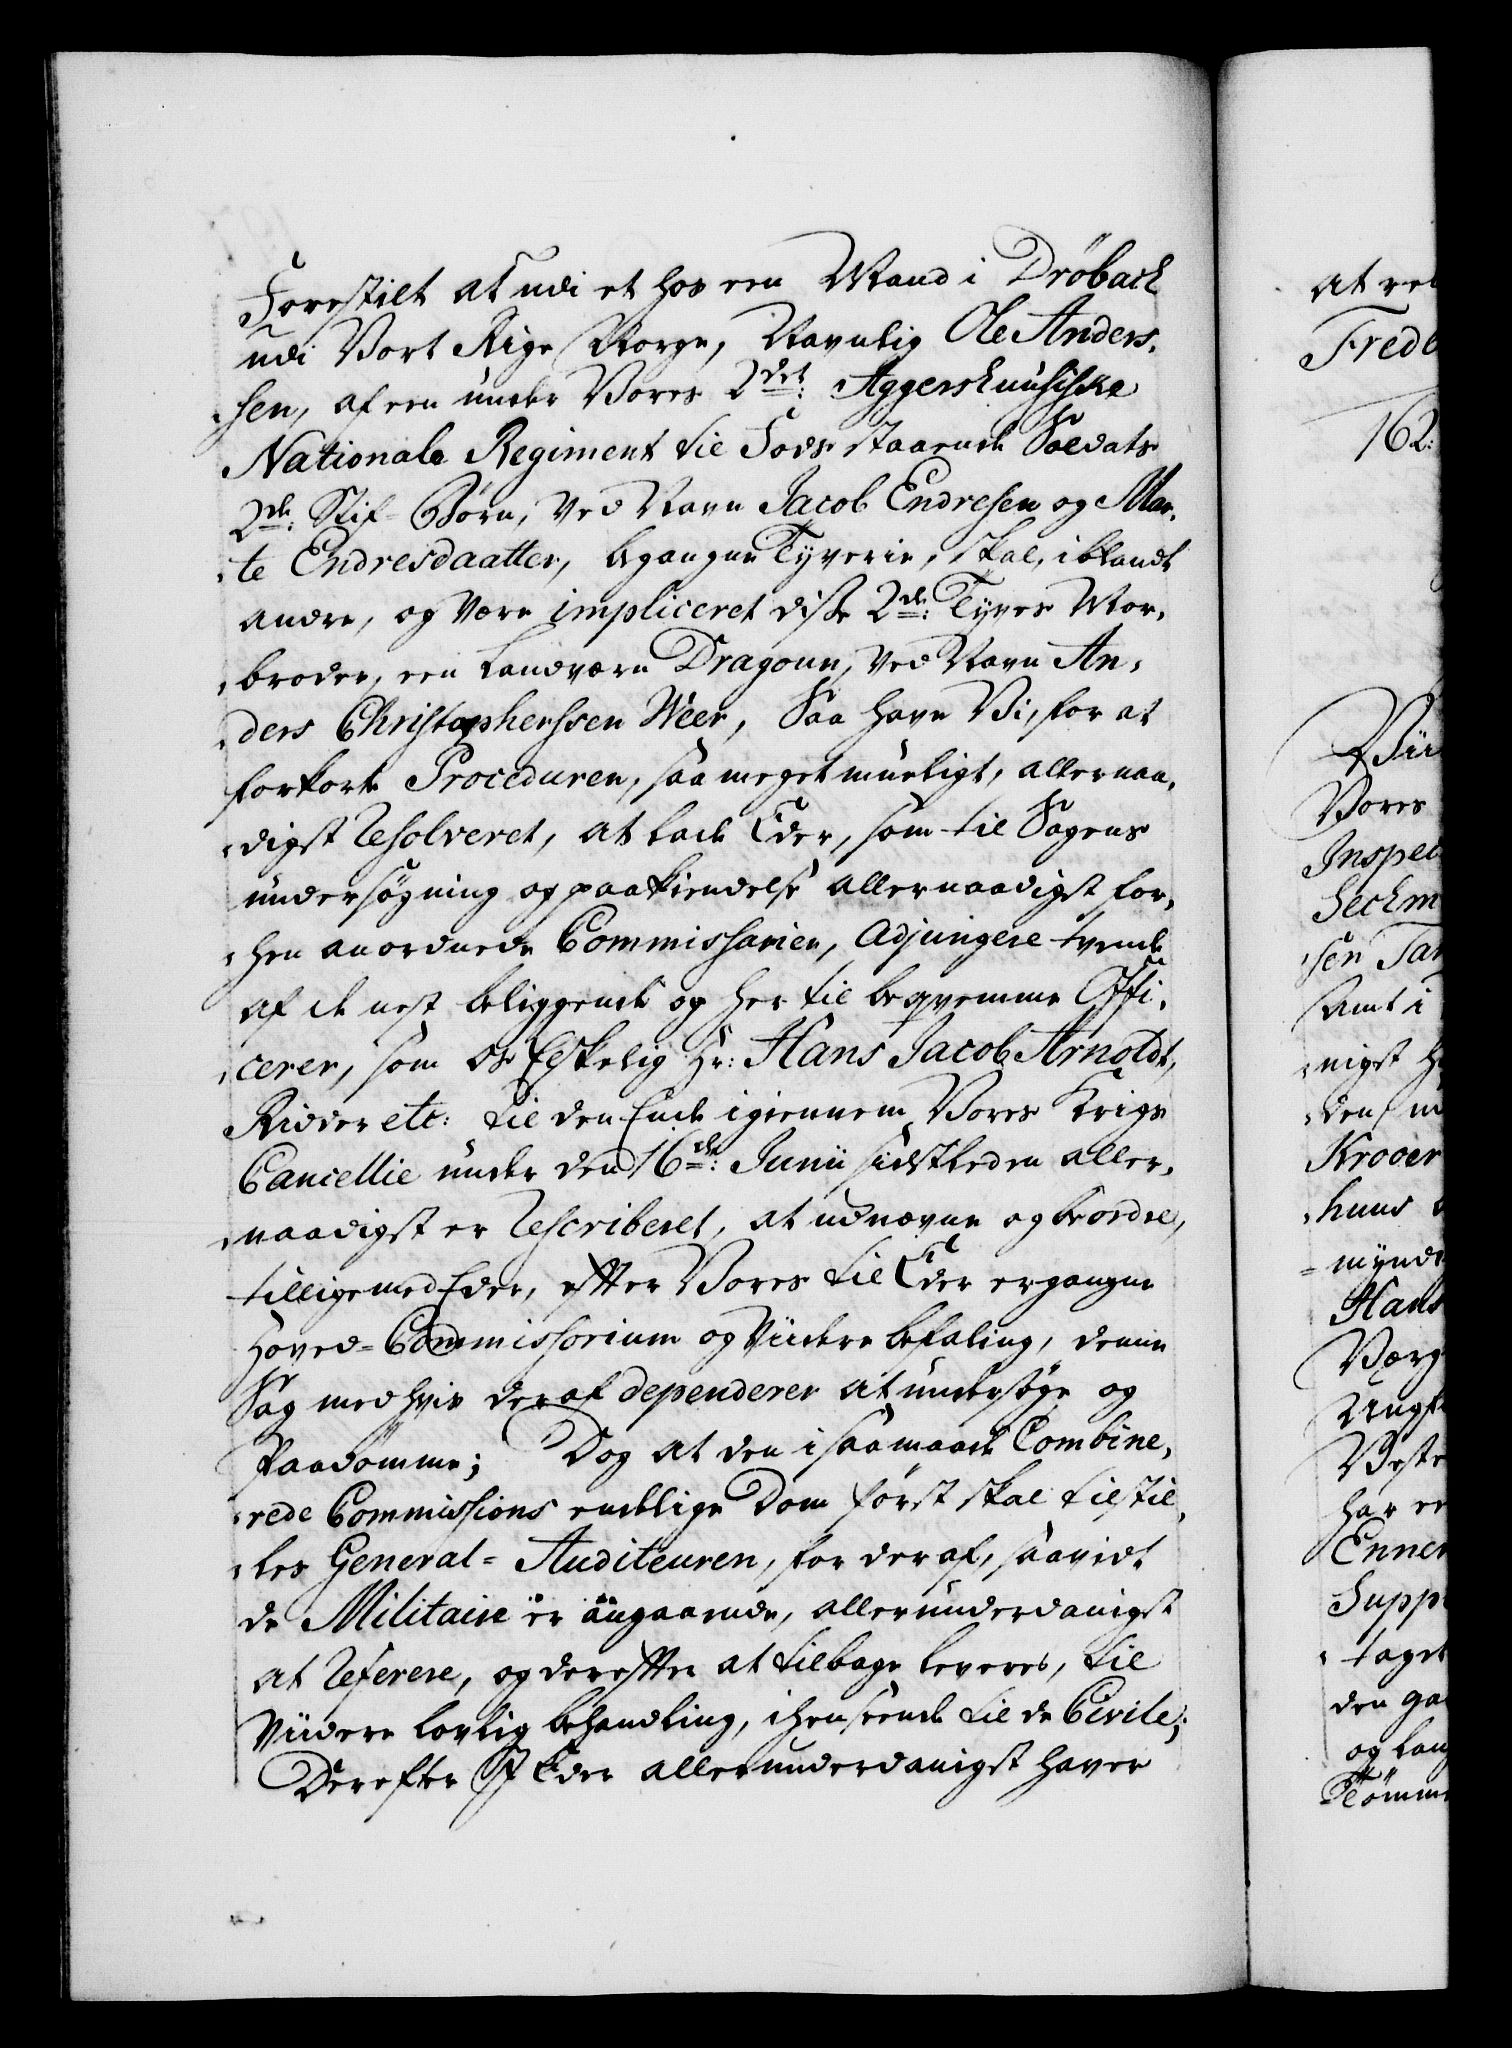 Forestilt at udi et hos een Mand i Dröbach
udi Vort Rige Norge, Navnlig Ole Anders,
,sen, af een under Vores 2det: Aggershuusiske
Nationale Regiment til Fods staaende Soldats
2de: Stif-Börn, ved Navn Jacob Endresen og Mar,
,te Endresdaatter, begangne Tyverie, skal, iblandt
andre, og være impliceret disse 2de: Tyves Mor,
,broder, een Landværn Dragoun, ved Navn An,
,ders Christophersen Weer, Saa have Vi, for at
forkorte Proceduren, saa meget mueligt, allernaa,
,digst Resolveret, at lade Eder, som til Sagens
undersögning og paakiendelse allernaadigst for,
,hen anordnede Commissarier, Adjungere tvende
af de nest beliggende og her til beqvemme Offi,
,cerer, som Os Elskelig Hr: Hans Jacob Arnoldt,
Ridder etc: til den Ende igiennem Vores Krigs
Cancellie under den 16de: Junii sidstleden aller,
,naadigst er Rescriberet, at udnævne og beordre,
tillige med Eder, efter Vores til Eder ergangne
Hoved-Commissorium og Viidere befaling, denne
Sag med hvis deraf dependerer at undersöge og
Paadömme; Dog at den i saa maade Combine,
,rede Commissions endelige Dom först skal tilstil,
,les General-Auditeuren, for deraf, saavidt
de Militaire er angaaende, allerunderdanigst
at Referere, og derefter at tilbage leveres, til
Viidere lovlig behandling, i henseende til de Civile;
Derefter I Eder allerunderdanigst haver
at ret
Fredr
162:
Vores
Inspec
Seckm
,sen Tar
Samt i
,nigst H
Krooer
,huus
=mynd
Hans
Værg
Ungf
Veste
har er
Enner
Supp
,taget
den ga
og lang
Tömme